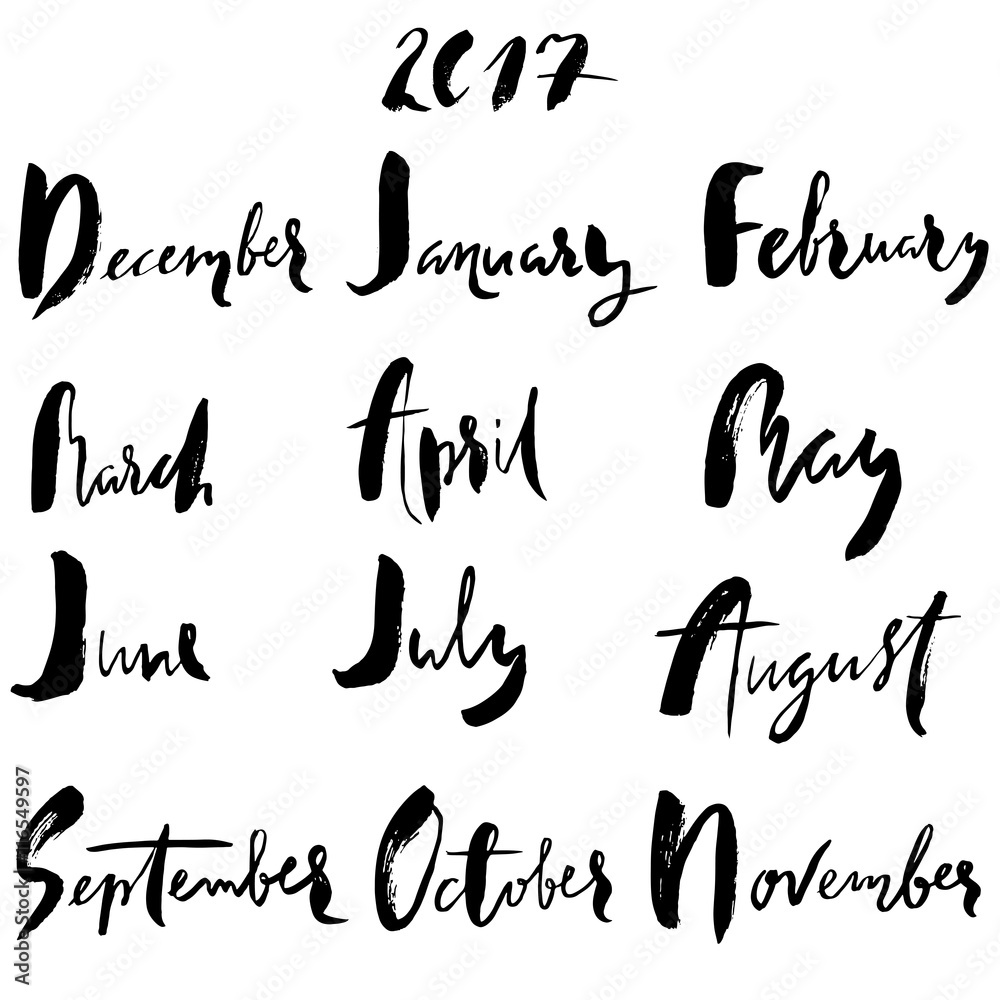 2017
December January February
March April May
June July August
September October November
Adobe Stock | #116549597